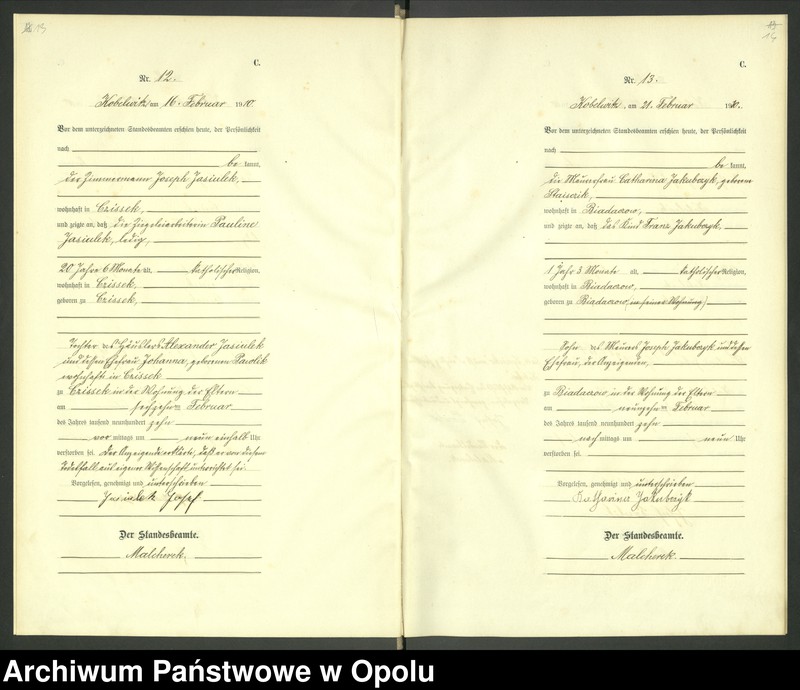 13
C.
Nr. 12.
Kobelwitz am 16. Februar 1910.
Vor dem unterzeichneten Standesbeamten erschien heute, der Persönlichkeit
nach
be kannt,
der Zimmermann Joseph Jasiulek,
wohnhaft in Czissek,
und zeigte an, daß die Ziegeleiarbeiterin Pauline
Jasiulek, ledig,
20 Jahre 6 Monate alt, katholischer Religion,
wohnhaft in Czissek,
geboren zu Czissek,
Tochter des Häuslers Alexander Jasiulek
und dessen Ehefrau Johanna, geborenen Pawlik
wohnhaft in Czissek
zu Czissek in der Wohnung der Eltern
am sechzehnten Februar
des Jahres tausend neunhundert zehn
vor mittags um neun einhalb Uhr
verstorben sei. Der Anzeigende erklärte, daß er von diesem
Todesfall aus eigener Wissenschaft unterrichtet sei.
Vorgelesen, genehmigt und unterschrieben
Jasiulek Josef
Der Standesbeamte.
Malcherek.
14
C.
Nr. 13.
Kobelwitz, am 21. Februar 1910.
Vor dem unterzeichneten Standesbeamten erschien heute, der Persönlichkeit
nach
be kannt,
die Maurerfrau Catharina Jakubczyk, geborene
wohnhaft in Biadacow,
und zeigte an, daß das Kind Franz Jakubczyk,
1 Jahr 3 Monate alt, katholischer Religion,
wohnhaft in Biadacow,
geboren zu Biadacow (in seiner Wohnung)
Sohn des Maurers Joseph Jakubczyk und dessen
Ehefrau, der Anzeigenden,
zu Biadacow in der Wohnung der Eltern
am neunzehnten Februar
des Jahres tausend neunhundert zehn
nach mittags um neun Uhr
verstorben sei.
Vorgelesen, genehmigt und unterschrieben
Katharina Jakubczyk
Der Standesbeamte.
Malcherek.
Archiwum Państwowe w Opolu